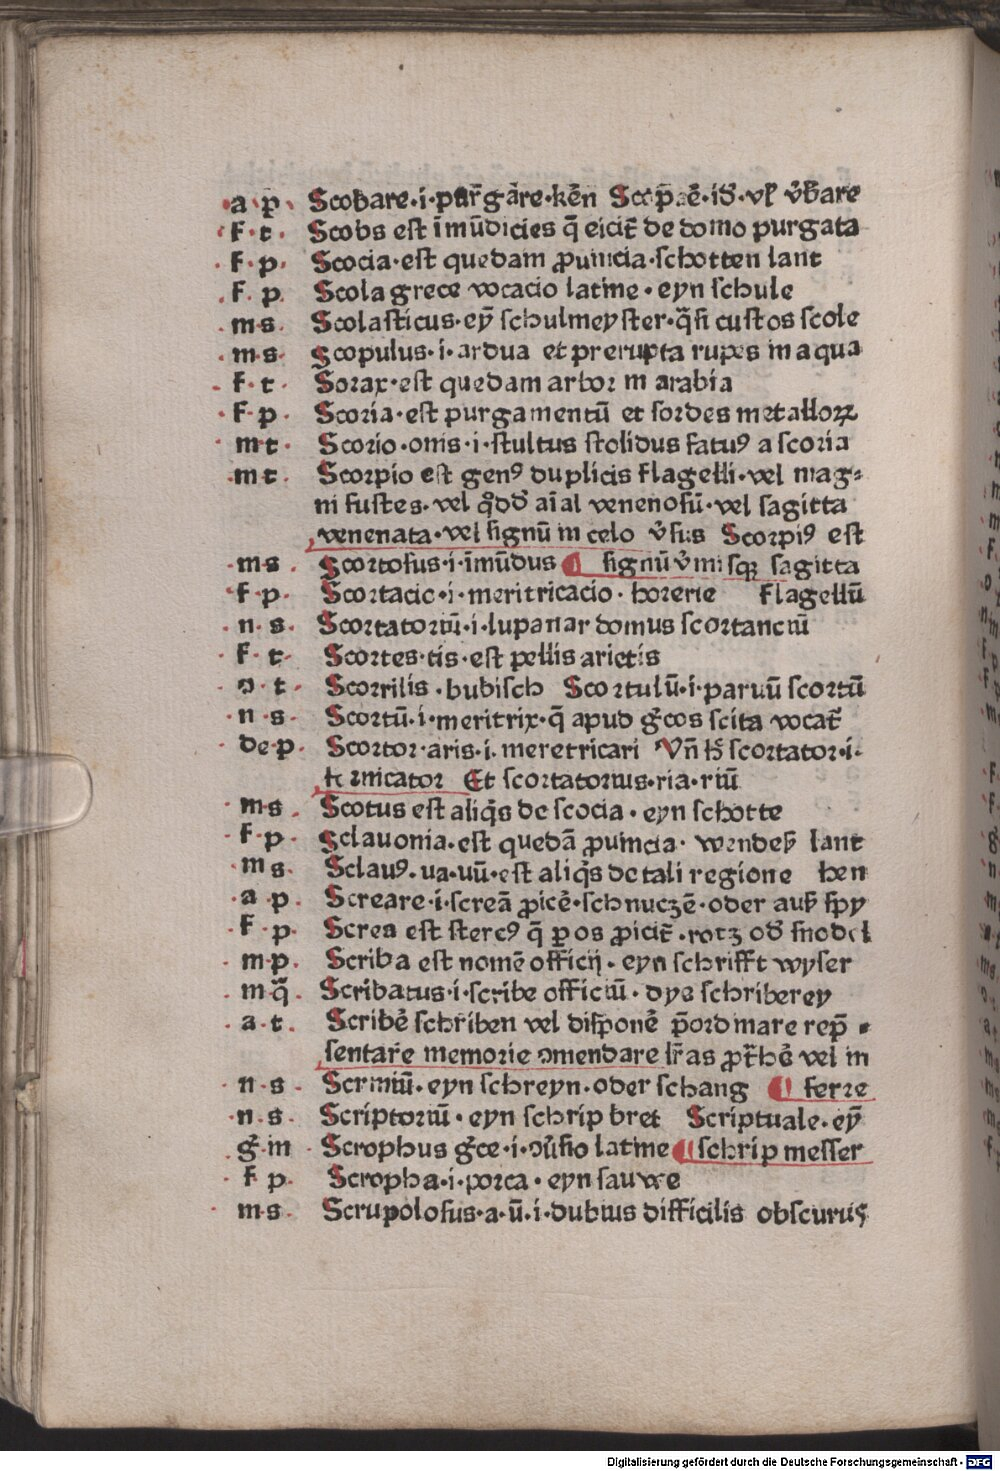 a p Scobare·i·purgare·kēn Scopare·id·vl vbare
f·t· Scobs est īmūdicies q̄ eicit̄ de domo purgata
f·p· Scocia·est quedam ꝓuincia·schotten lant
f·p· Scola grece vocacio latine·eyn schule
m·s· Scolasticus·eȳ schulmeyster·q̄si custos scole
m·s· Scopulus·i·ardua et prerupta rupes in aqua
f·t· Sorax·est quedam arbor in arabia
f·p· Scoria·est purgamentū et sordes metalloꝝ
m·t· Scorio·onis·i·stultus stolidus fatuꝰ a scoria
m·t· Scorpio est genꝰ duplicis flagelli·vel mag⸗
ni fustes·vel qđđ aīal venenosū·vel sagitta
venenata·vel signū in celo v̉sus Scorpiꝰ est
m·s· Scortosus·i·īmūdus ¶ signū v̉misqꝫ sagitta
f·p· Scortacio·i·meritricacio·horerie flagellū
n·s· Scortatoriū·i·lupanar domus scortanciū
f·t· Scortes·tis·est pellis arietis
o·t· Scorrilis·bubisch Scortulū·i·paruū scortū
n·s· Scortū·i·meritrix·q̄ apud g̊cos scita vocat̄
de·p· Scortor·aris·i·meretricari Vn̄ đr scortator·i·
fornicator Et scortatorius·ria·riū
m·s· Scotus est aliq̊s de scocia·eyn schotte
f·p· Sclauonia·est quedā ꝓuincia·wendesch lant
m·s· Sclauꝰ·ua·uū·est aliq̊s de tali regione hen
a·p· Screare·i·screā ꝓicē·schnuczē·oder auß spy
f·p· Screa est stercꝰ q̄ ꝑ os ꝓicit̄·rotz od̄ snodel
m·p· Scriba est nomē officij·eyn schrifft wyser
m·q̄ Scribatus·i·scribe officiū·dye schriberey
a·t· Scribē schriben vel disponē p̄ordinare rep̄⸗
sentare memorie ꝯmendare lr̄as ꝓt̄hē vel in
n·s· Scriniū·eyn schreyn·oder schang ¶ ferre
n·s· Scriptoriū·eyn schrip bret Scriptuale·eȳ
g̊·m Scrophus g̊ce·i·ꝯūsio latine ¶ schrip messer
f·p· Scropha·i·porca·eyn sauwe
m·s· Scrupolosus·a·ū·i·dubius difficilis obscurus
Digitalisierung gefördert durch die Deutsche Forschungsgemeinschaft - DFG